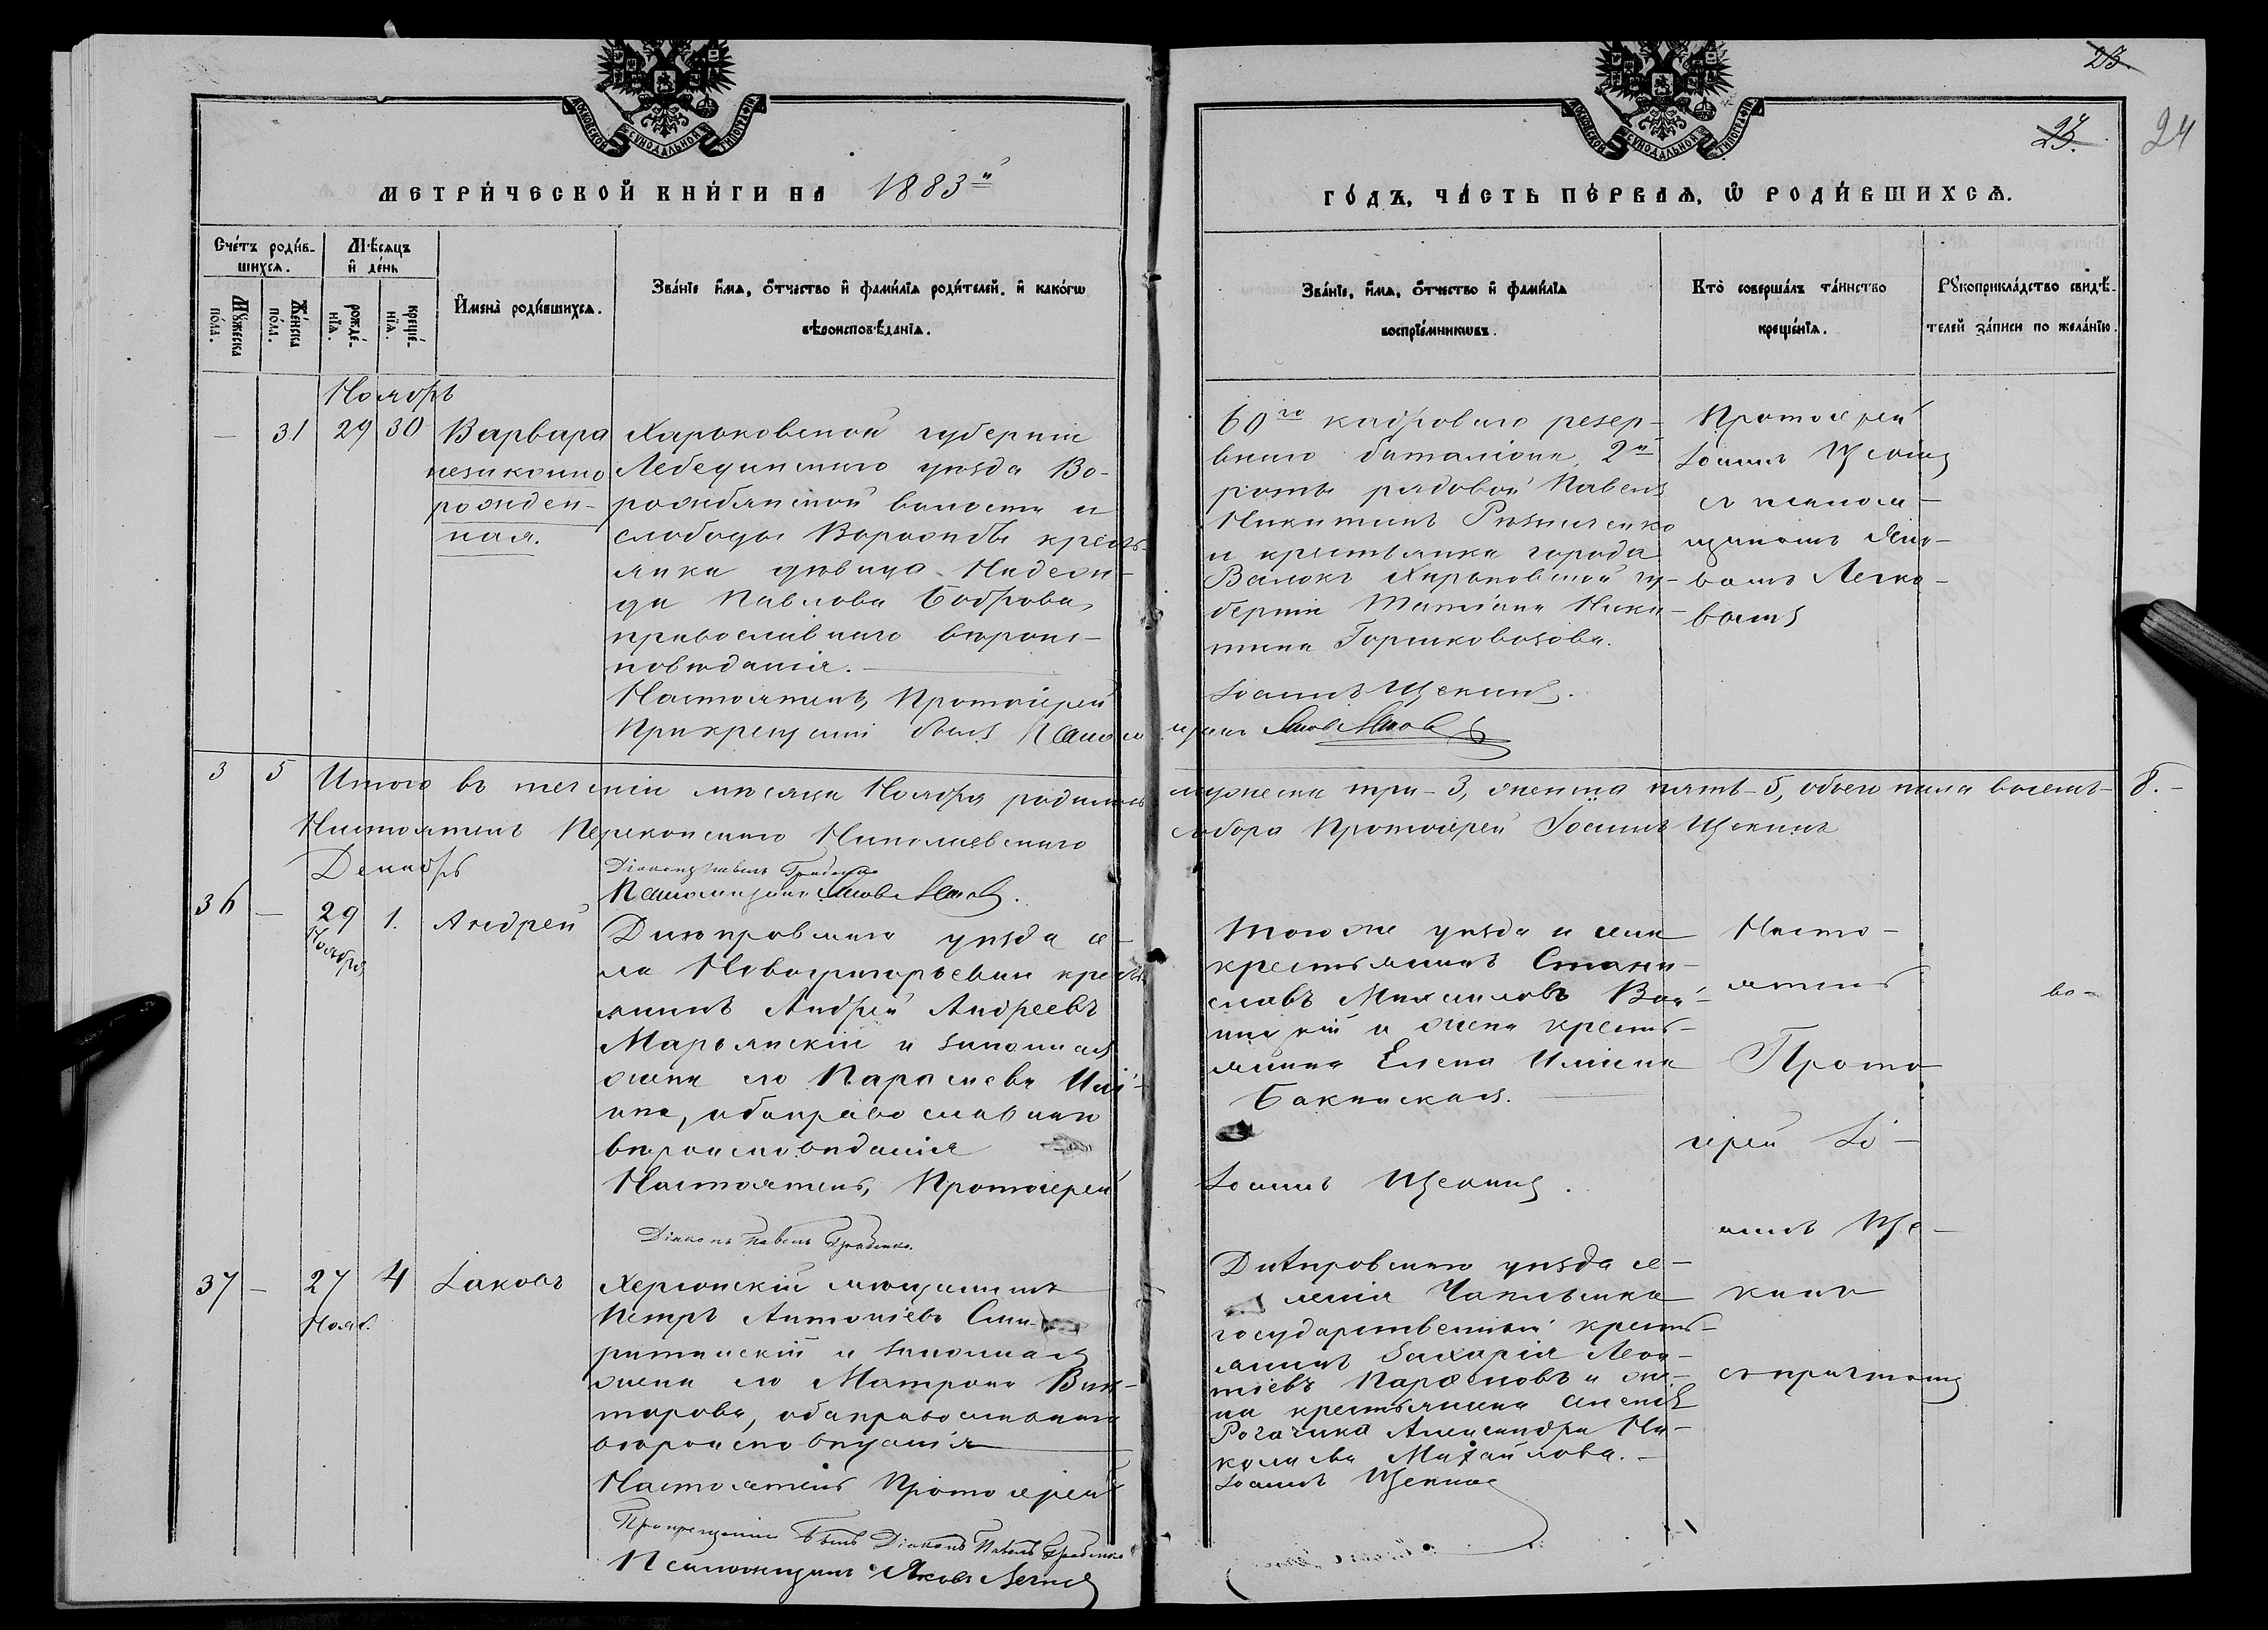 23.
23.
24
МОСКОВСКОЙ СУНОДАЛЬНОЙ ТИПОГРАФІИ
МОСКОВСКОЙ СУНОДАЛЬНОЙ ТИПОГРАФІИ
МЕТРИ́ЧЕСКОЙ КНИ́ГИ НА 1883й
ГО́ДЪ, ЧА́СТЬ ПЕ́РВАѦ, Ѿ РОДИ́ВШИХСѦ.
Сче́тъ роди́в-
шихсѧ.
Мꙋ́жеска по́ла.
Же́нска по́ла.
Мѣ́сѧцъ
и҆ де́нь
рожде́-
нїѧ.
креще́-
нїѧ.
И҆мена̀ роди́вшихсѧ.
Зва́нїе и҆́мѧ, ѻ҆́тчество и҆ фамѝлїѧ роди́телей, и҆ како́гѡ
вѣроисповѣ́данїѧ.
Зва́нїе, и҆́мѧ, ѻ҆́тчество и҆ фами́лїѧ
воспрїе́мникѡвъ.
Кто̀ соверша́лъ та́инство
креще́нїѧ.
Рꙋкоприкла́дство свидѣ́-
телей за́писи по жела́нїю.
Ноябрь
— 31 29 30 Варвара
незаконно
рожден-
ная.
Харьковской губерніи
Лебединскаго уѣзда Во-
рожбянской волости и
слободы Ворожбы кресть
янка дѣвица Надеж-
да Павлова Боброва,
православнаго вѣроис-
повѣданія.
Настоятель, Протоіерей
При крещеніи былъ Псалом
60го кадроваго резер-
внаго баталіона, 2й
роты рядовой Павелъ
Никитинъ Рѣзниченко
и крестьянка города
Валокъ Харьковской гу-
берніи Татіана Ники-
тина Горшковозова.
Іоаннъ Щекинъ.
щикъ Яковъ
Протоіерей
Іоаннъ Щекинъ
съ псалом-
щикомъ Яко-
вомъ
3 5 Итого въ теченіи мѣсяца Ноября родилось
мужеска три - 3, женска пять - 5, обоего пола восемь - 8.-
Настоятель Перекопскаго Николаевскаго
собора Протоіерей Іоаннъ Щекинъ
Діаконъ Павелъ
Псаломщикъ Яковъ
Декабрь
36 — 29 1. Андрей
Ноября
Днѣпровскаго уѣзда се-
ла Новогригорьевки кресть
янинъ Андрей Андреевъ
Марьянскій и законная
жена его Параскева Илі-
ина, оба православнаго
вѣроисповѣданія
Настоятель, Протоіерей
Діаконъ Павелъ
Того же уѣзда и села
крестьянинъ Стани-
славъ Михаиловъ
и жена кресть-
янина Елена Иліина
Бакинская.
Іоаннъ Щекинъ.
Насто-
ятель
Прото
іерей Іо-
аннъ Ще-
кинъ
съ причтомъ
во-
37 — 27 4 Іаковъ
Нояб.
Херсонскій мѣщанинъ
Петръ Антоніевъ Спи-
ританскій и законная
жена его Матрона Вик-
торова, оба православнаго
вѣроисповѣданія
Настоятель Протоіерей
При крещеніи былъ Діаконъ Павелъ
Псаломщикъ Яковъ
Днѣпровскаго уѣзда се-
ленія Чаплынка
государственный кресть-
янинъ Захарія Леон-
тіевъ Парѳеновъ и же-
на крестьянина
Рогачика Александра Ни-
колаева Михайлова.
Іоаннъ Щекинъ